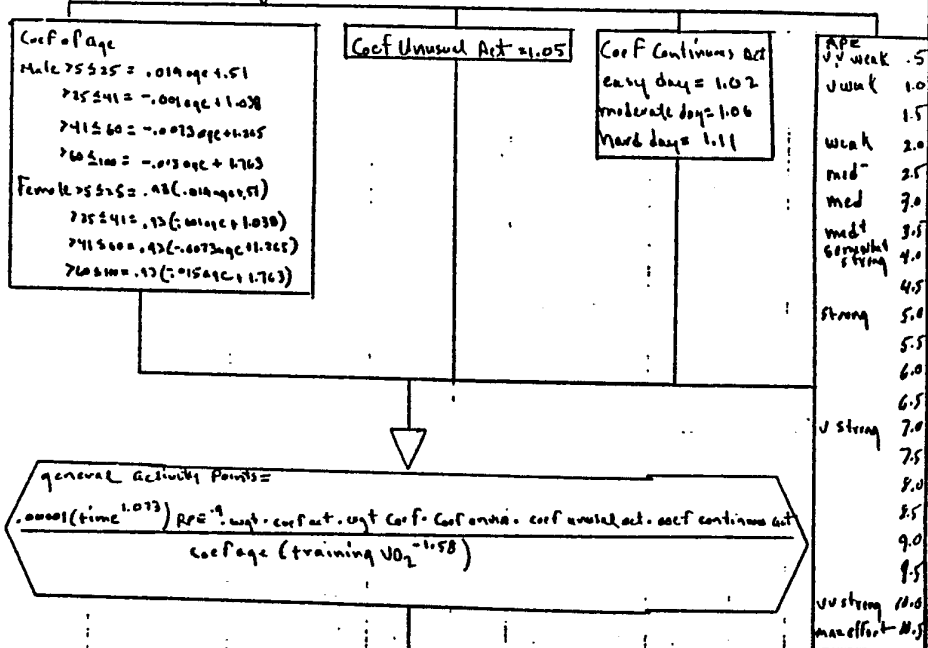 Coef of age
Male >5≤25 = .019age+.51
>25≤41 = -.001age+1.038
>41≤60 = -.0073age+1.265
>60≤100 = -.015age+1.763
Female >5≤25 = .93(.019age+.51)
>25≤41 = .93(-.001age+1.038)
>41≤60 = .93(-.0073age+1.265)
>60≤100 = .93(-.015age+1.763)
Coef Unusual Act = 1.05
Coef Continuous Act
easy day = 1.02
moderate day = 1.06
hard day = 1.11
RPE
v,v weak .5
v weak 1.0
1.5
weak 2.0
med- 2.5
med 3.0
med+ 3.5
somewhat strong 4.0
4.5
strong 5.0
5.5
6.0
6.5
v strong 7.0
7.5
8.0
8.5
9.0
9.5
vv strong 10.0
max effort 10.5
general activity Points=
.00001(time^1.073) RPE^.9 · wgt · coef act · wgt coef · coef envir · coef unusual act · coef continuous act
coef age (training VO2^-1.58)